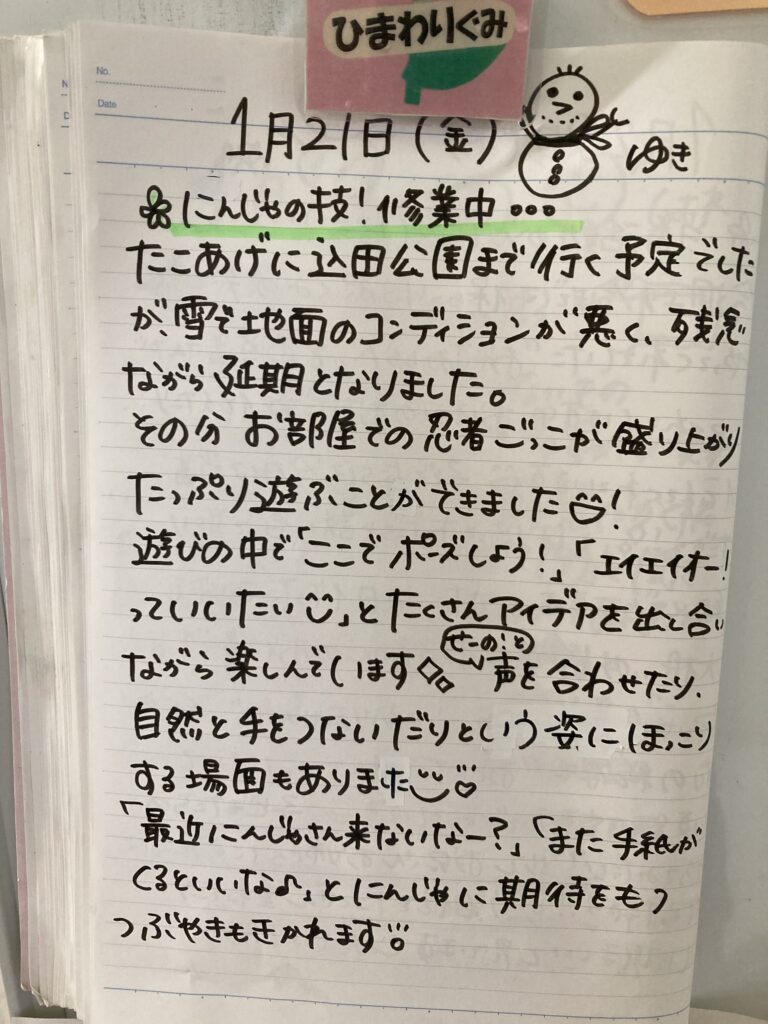 ひまわりぐみ
No.
Date
1月21日(金)
ゆき
にんじゃの技!修業中...
たこあげに込田公園まで行く予定でした
が、雪で地面のコンディションが悪く、残念
ながら延期となりました。
その分 お部屋での忍者ごっこが盛り上がり
たっぷり遊ぶことができました!
遊びの中で「ここでポーズしよう!」「エイエイオー!
っていいたい」とたくさんアイデアを出し合い
せーの!と
ながら楽しんでいます 声を合わせたり、
自然と手をつないだりという姿にほっこり
する場面もありました
「最近にんじゃさん来ないなー?」「また手紙が
くるといいな♪」とにんじゃに期待をもつ
つぶやきもきかれます